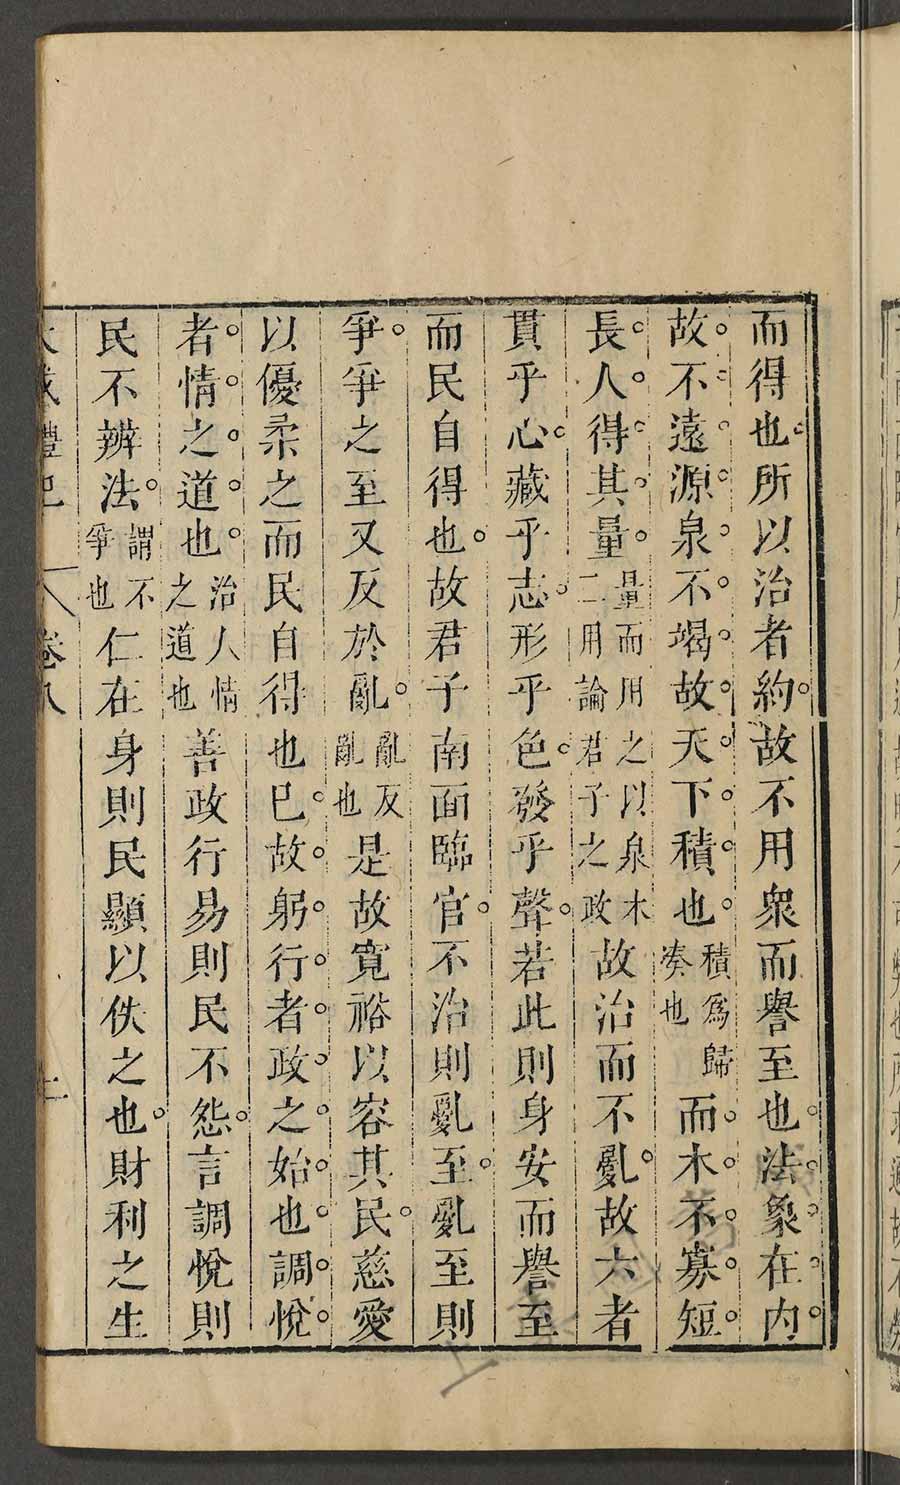 而得也所以治者約故不用衆而譽至也法象在内
故不遠源泉不竭故天下積也積爲歸湊也而木不寡短
長人得其量量而用之以泉木二用論君子之政故治而不亂故六者
貫乎心藏乎志形乎色發乎聲若此則身安而譽至
而民自得也故君子南面臨官不治則亂至亂至則
爭爭之至又反於亂亂反亂也是故寛裕以容其民慈愛
以優柔之而民自得也已故躬行者政之始也調悅
者情之道也治人情之道也善政行易則民不怨言調悅則
民不辨法謂不爭也仁在身則民顯以佚之也財利之生
大戴禮記 卷八